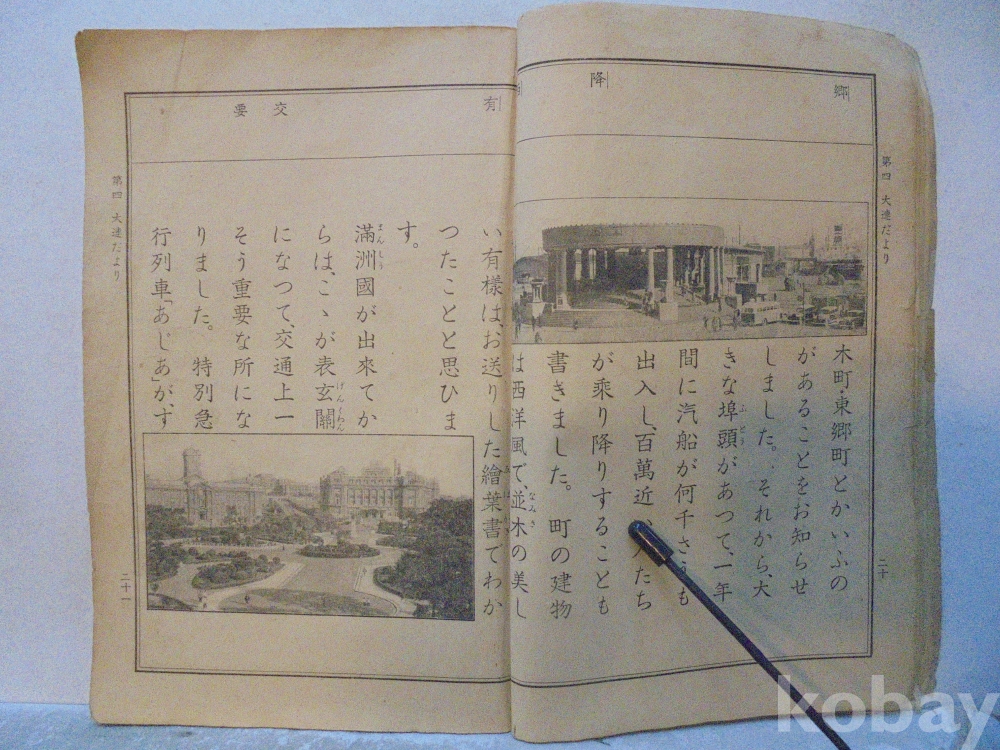 郷
降
第四 大連だより
木町・東郷町とかいふの
があることをお知らせ
しました。それから、大
きな埠頭があつて、一年
間に汽船が何千も
出入し、百萬近たち
が乘り降りすることも
書きました。町の建物
は西洋風で、並木の美し
二十
有
交
要
い有樣は、お送りした繪葉書でわか
つたことと思ひま
す。
滿洲國が出來てか
らは、こゝが表玄關
になつて、交通上一
そう重要な所にな
りました。特別急
行列車「あじあ」が、す
第四 大連だより
二十一
kobay